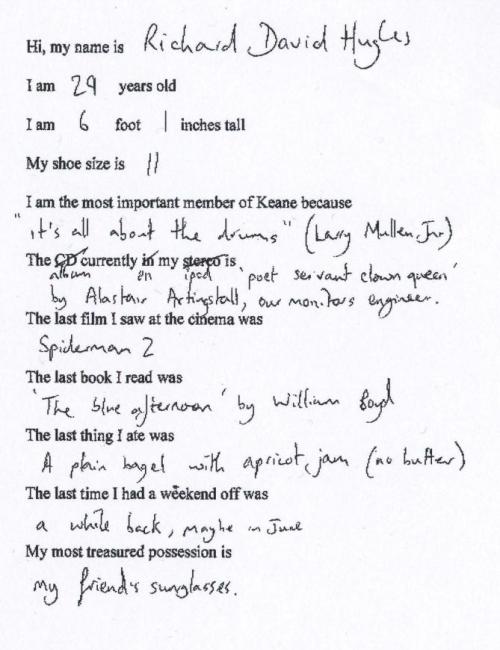 Hi, my name is Richard David Hughes
I am 29 years old
I am 6 foot 1 inches tall
My shoe size is 11
I am the most important member of Keane because
"it's all about the drums" (Larry Mullen, Jnr)
The CD currently in my stereo is
album on ipod 'poet servant clown queen'
by Alastair Artingstall, our monitors engineer.
The last film I saw at the cinema was
Spiderman 2
The last book I read was
'The blue afternoon' by William Boyd
The last thing I ate was
A plain bagel with apricot jam (no butter)
The last time I had a weekend off was
a while back, maybe in June
My most treasured possession is
my friend's sunglasses.